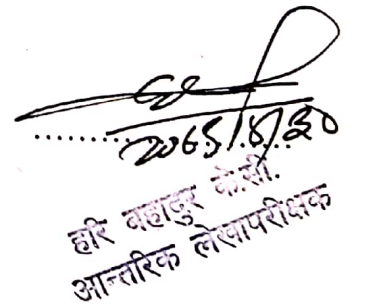 2065/8/30
हरि बहादुर के.सी.
आन्तरिक लेखापरीक्षक